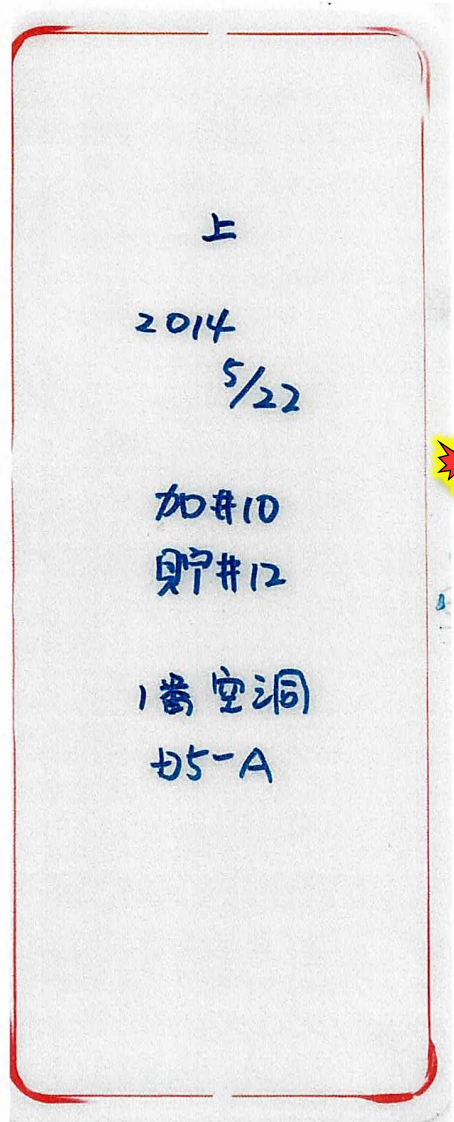 上
2014
5/22
加#10
貯#12
1番空洞
D5-A